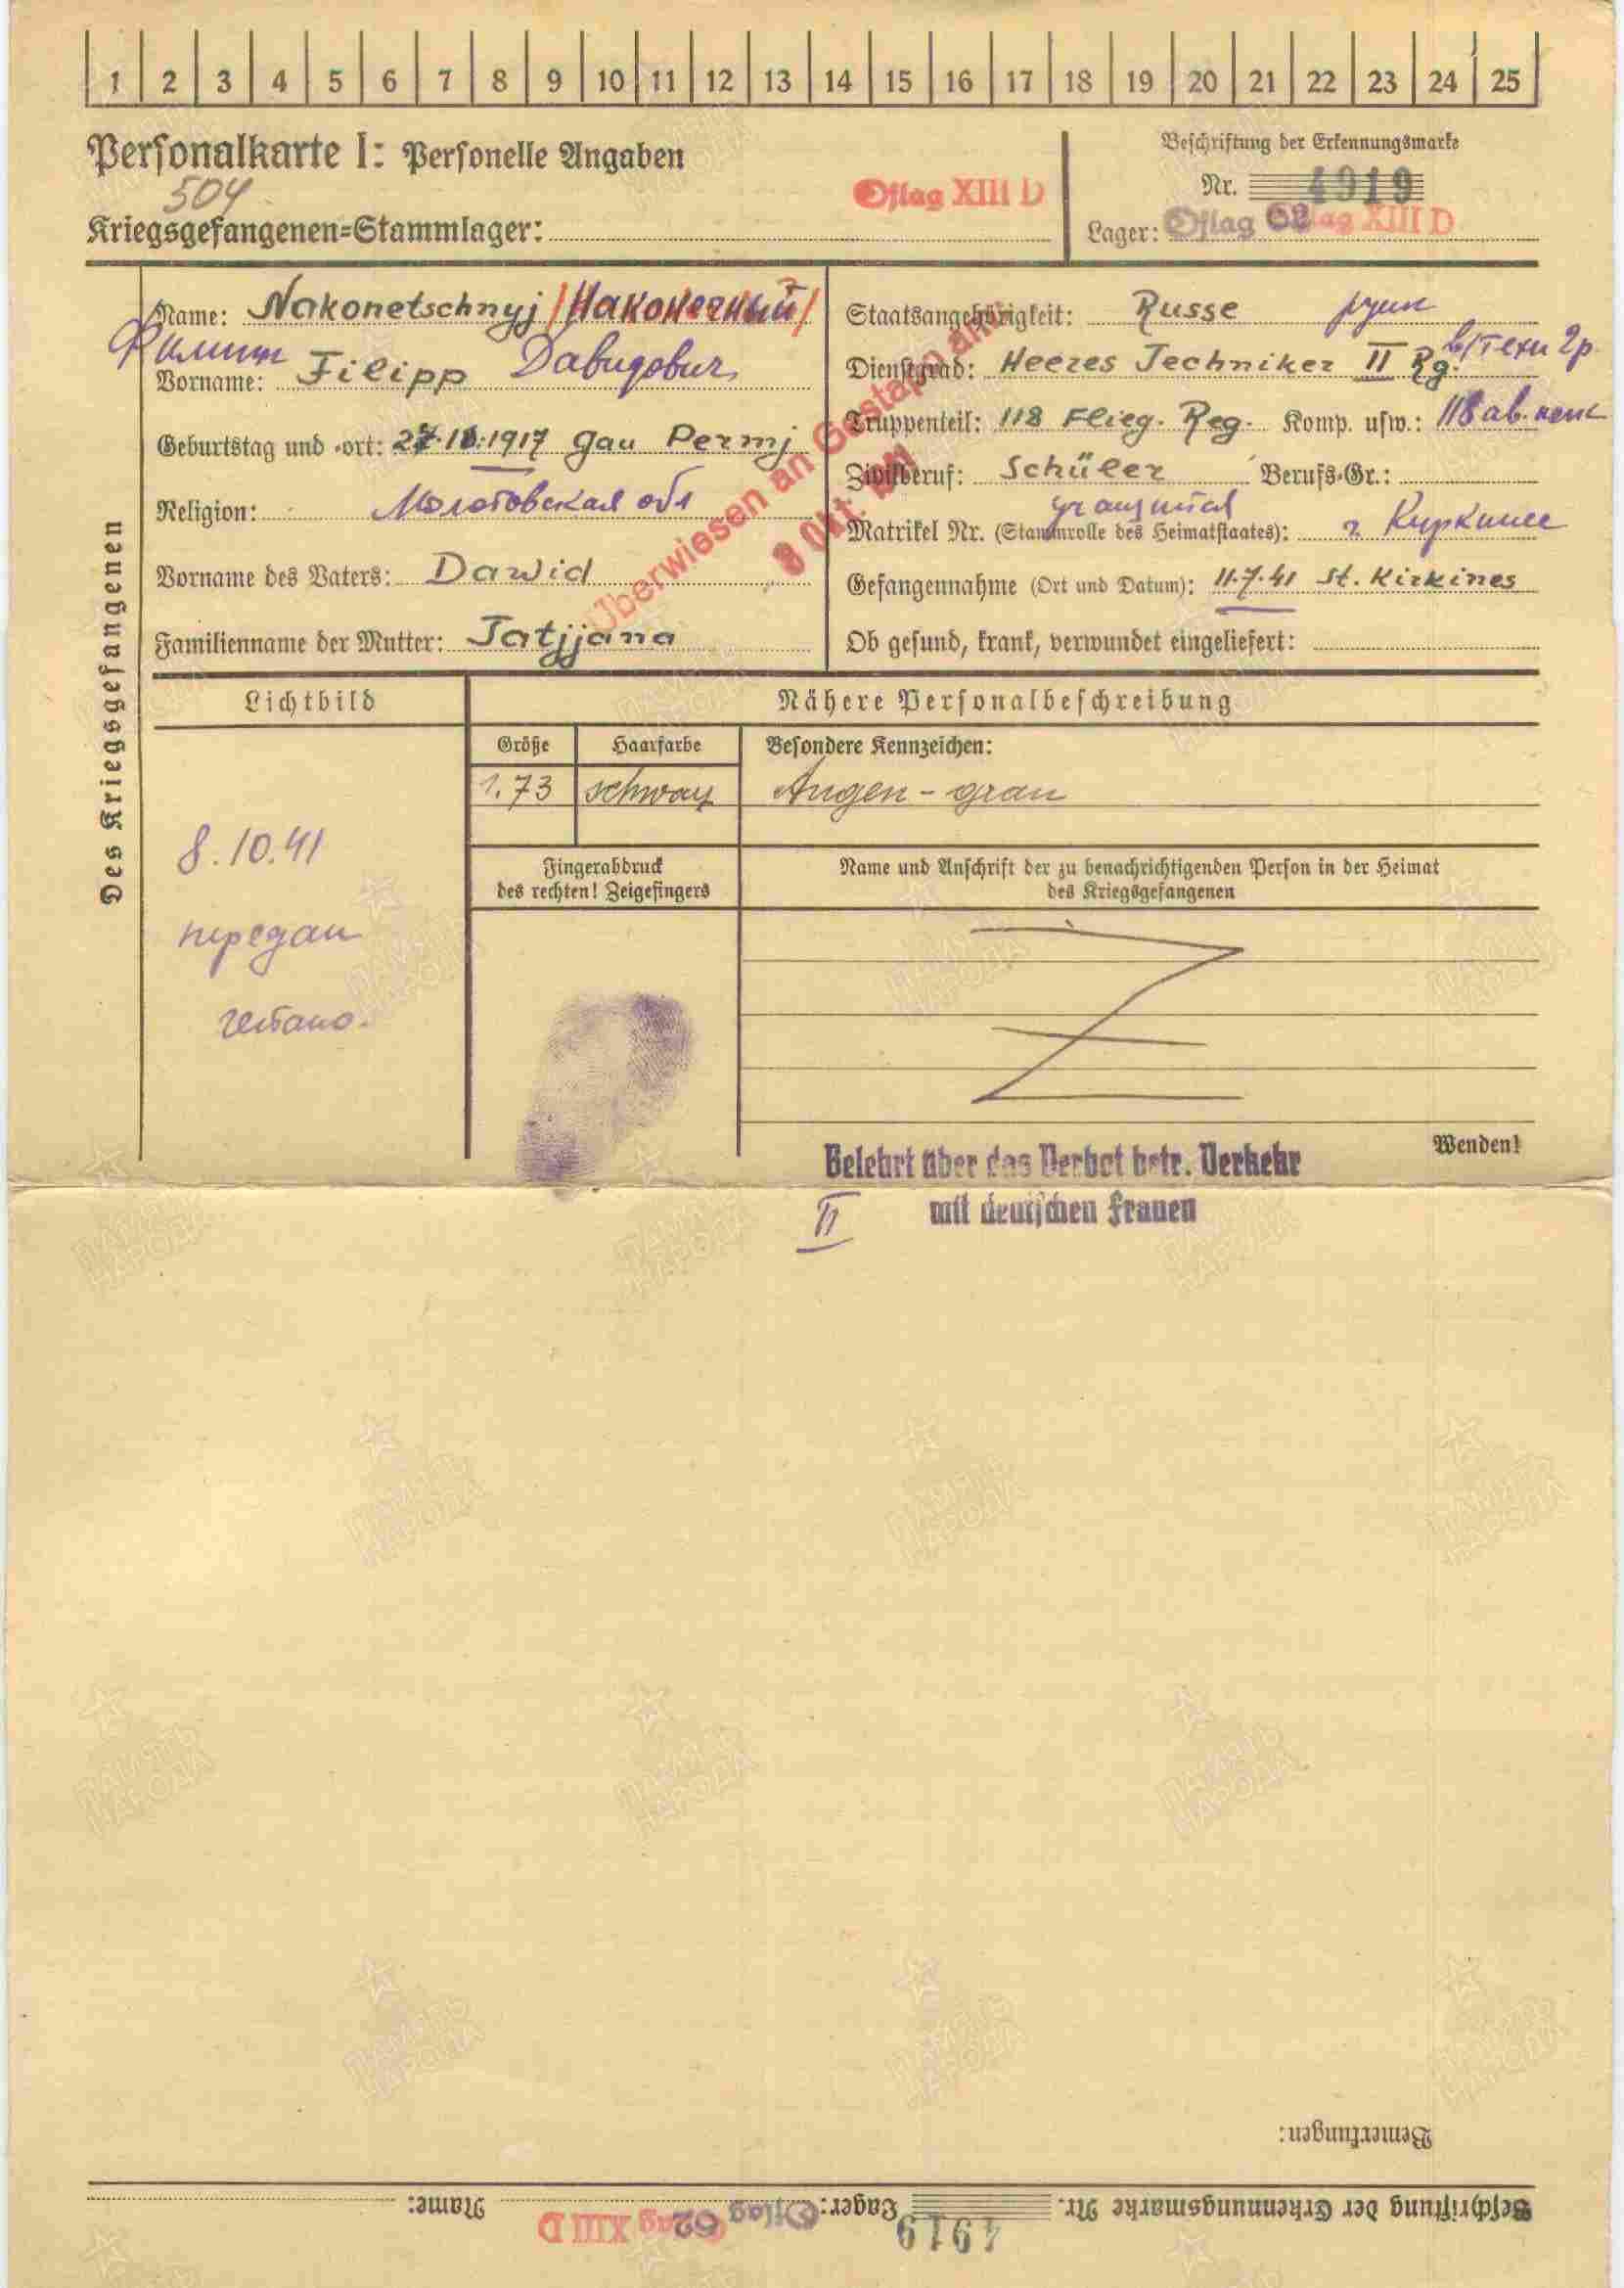 1 2 3 4 5 6 7 8 9 10 11 12 13 14 15 16 17 18 19 20 21 22 23 24 25
Personalkarte I: Personelle Angaben
Beschriftung der Erkennungsmarke
504
Oflag XIII D
Nr. 4919
Kriegsgefangenen=Stammlager:
Lager: Oflag 62 Oflag XIII D
Des Kriegsgefangenen
Name: Nakonetschnyj /Наконечный/
Филипп Давидович
Vorname: Filipp
Geburtstag und -ort: 27.10.1917 gau Permj
Религion: Молотовская обл
Vorname des Vaters: Dawid
Familienname der Mutter: Tatjjana
Staatsangehörigkeit: Russe
в/техн 2 р.
Dienstgrad: Heeres Techniker II Rg.
Truppenteil: 118 Flieg. Reg. Komp. usw.: 118 ав. полк
Zivilberuf: Schüler Berufs-Gr.:
учащийся
Matrikel Nr. (Stammrolle des Heimatstaates): г Киркинес
Gefangennahme (Ort und Datum): 11.7.41 St. Kirkines
Ob gesund, krank, verwundet eingeliefert:
Überwiesen an Gestapo am:
8. Okt. 1941
Lichtbild
Nähere Personalbeschreibung
Größe Haarfarbe Besondere Kennzeichen:
1.73 schwarz Augen - grau
8.10.41
передан
гестапо.
Fingerabdruck
des rechten! Zeigefingers
Name und Anschrift der zu benachrichtigenden Person in der Heimat
des Kriegsgefangenen
Wenden!
Belehrt über das Verbot betr. Verkehr
mit deutschen Frauen
II
Bemerkungen:
Beschriftung der Erkennungsmarke Nr. 4919 Lager: Oflag 62 Oflag XIII D Name:
ПАМЯТЬ
НАРОДА